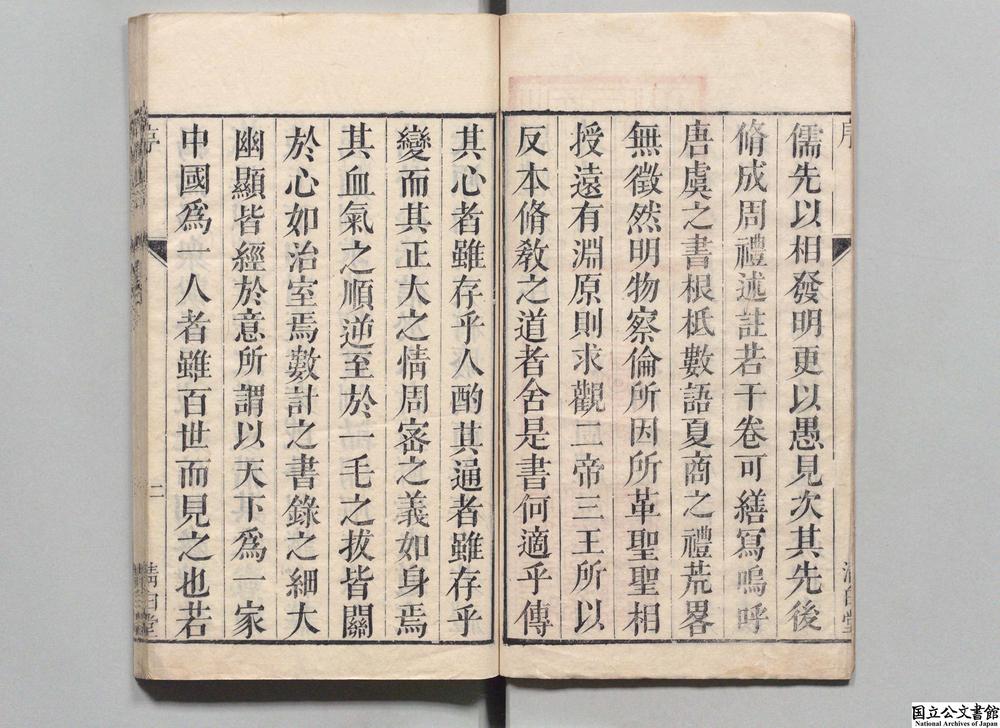 儒先以相發明更以愚見次其先後
脩成周禮述註若干卷可繕寫嗚呼
唐虞之書根柢數語夏商之禮荒畧
無徵然明物察倫所因所革聖聖相
授遠有淵原則求觀二帝三王所以
反本脩敎之道者舍是書何適乎傳
其心者雖存乎人酌其通者雖存乎
變而其正大之情周密之義如身焉
其血氣之順逆至於一毛之拔皆關
於心如治室焉數計之書錄之細大
幽顯皆經於意所謂以天下爲一家
中國爲一人者雖百世而見之也若
序
二
清白堂
国立公文書館
National Archives of Japan